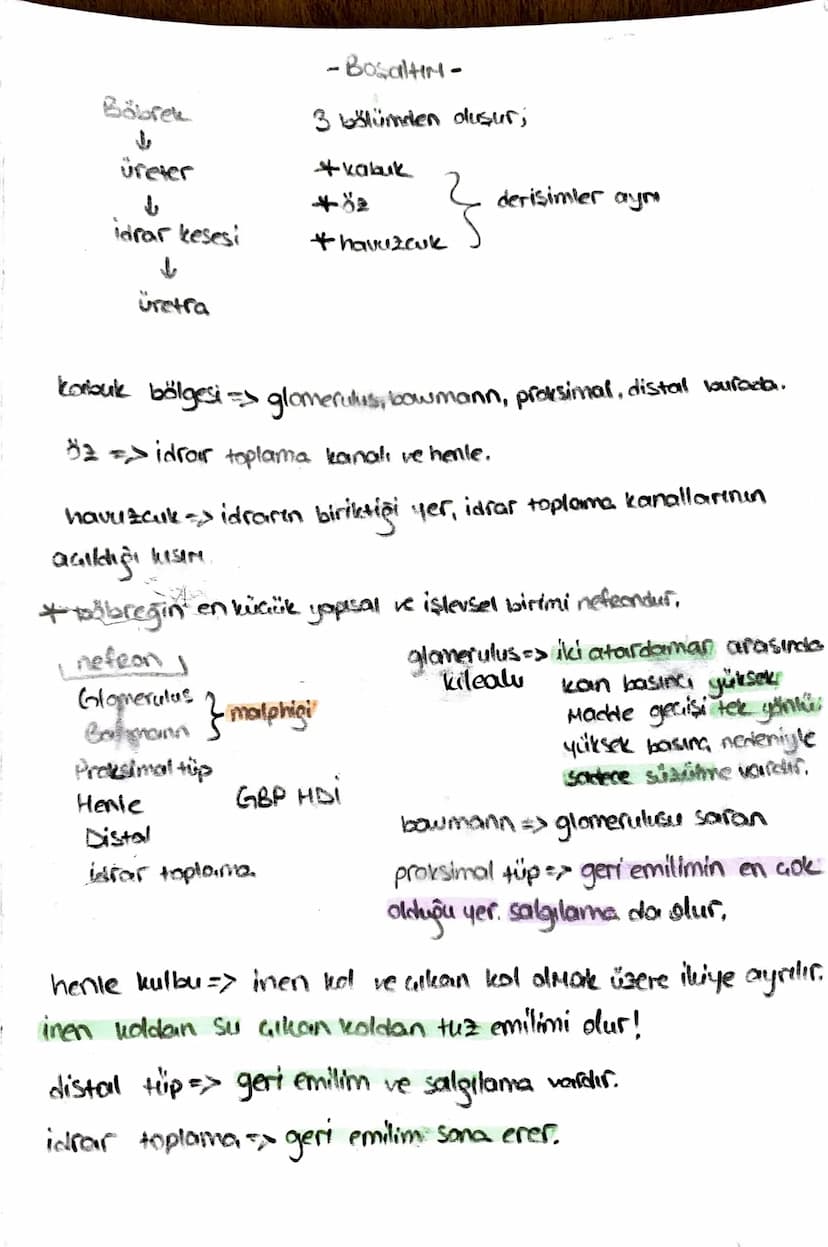 -Boşaltım-
Böbrek
↓
üreter
↓
idrar kesesi
↓
üretra
3 bölümden oluşur;
*kabuk
*öz
*havuzcuk
} derişimler aynı
kabuk bölgesi => glomerulus, bowmann, proksimal, distal burada.
öz => idrar toplama kanalı ve henle.
havuzcuk => idrarın biriktiği yer, idrar toplama kanallarının
açıldığı kısım
* Böbreğin en küçük yapısal ve işlevsel birimi nefrondur.
nefron
Glomerulus
Bowmann
} malphigi
Proksimal tüp
Henle
Distal
idrar toplama
GBP HDİ
glomerulus => iki atardamar arasında
kılcaldı kan basıncı yüksek
Madde geçişi tek yönlü
yüksek basınç nedeniyle
sadece süzülme vardır.
bowmann => glomerulusu saran
proksimal tüp => geri emilimin en çok
olduğu yer. salgılama da olur.
henle kulbu => inen kol ve çıkan kol olmak üzere ikiye ayrılır.
inen koldan su çıkan koldan tuz emilimi olur!
distal tüp => geri emilim ve salgılama vardır.
idrar toplama => geri emilim sona erer.